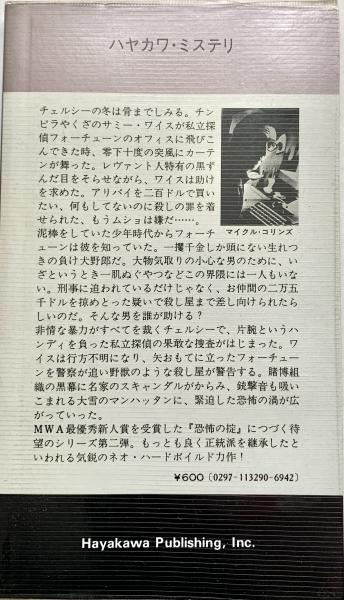 ハヤカワ・ミステリ
チェルシーの冬は骨までしみる。チン
ピラやくざのサミー・ワイスが私立探
偵フォーチューンのオフィスに飛びこ
んできた時、零下十度の突風にカーテ
ンが舞った。レヴァント人特有の黒ず
んだ目をそらせながら、ワイスは助け
を求めた。アリバイを二百ドルで買い
たい、何もしてないのに殺しの罪を着
せられた、もうムショは嫌だ……。
マイクル・コリンズ
泥棒をしていた少年時代からフォーチ
ューンは彼を知っていた。一攫千金しか頭にない生れつ
きの負け犬野郎だ。大物気取りの小心な男のために、い
ざというとき一肌ぬぐやつなどこの界隈には一人もいな
い。刑事に追われているだけじゃなく、お仲間の二万五
千ドルを掠めとった疑いで殺し屋まで差し向けられたら
しいのだ。そんな男を誰が助ける？
非情な暴力がすべてを裁くチェルシーで、片腕というハ
ンディを負った私立探偵の果敢な捜査がはじまった。ワ
イスは行方不明になり、矢おもてに立ったフォーチュー
ンを警察が追い野獣のような殺し屋が警告する。賭博組
織の黒幕に名家のスキャンダルがからみ、銃撃音も吸い
こまれる大雪のマンハッタンに、緊迫した恐怖の渦が広
がっていった。
MWA最優秀新人賞を受賞した『恐怖の掟』につづく待
望のシリーズ第二弾。もっとも良く正統派を継承したと
いわれる気鋭のネオ・ハードボイルド力作！
¥600〔0297-113290-6942〕
Hayakawa Publishing, Inc.